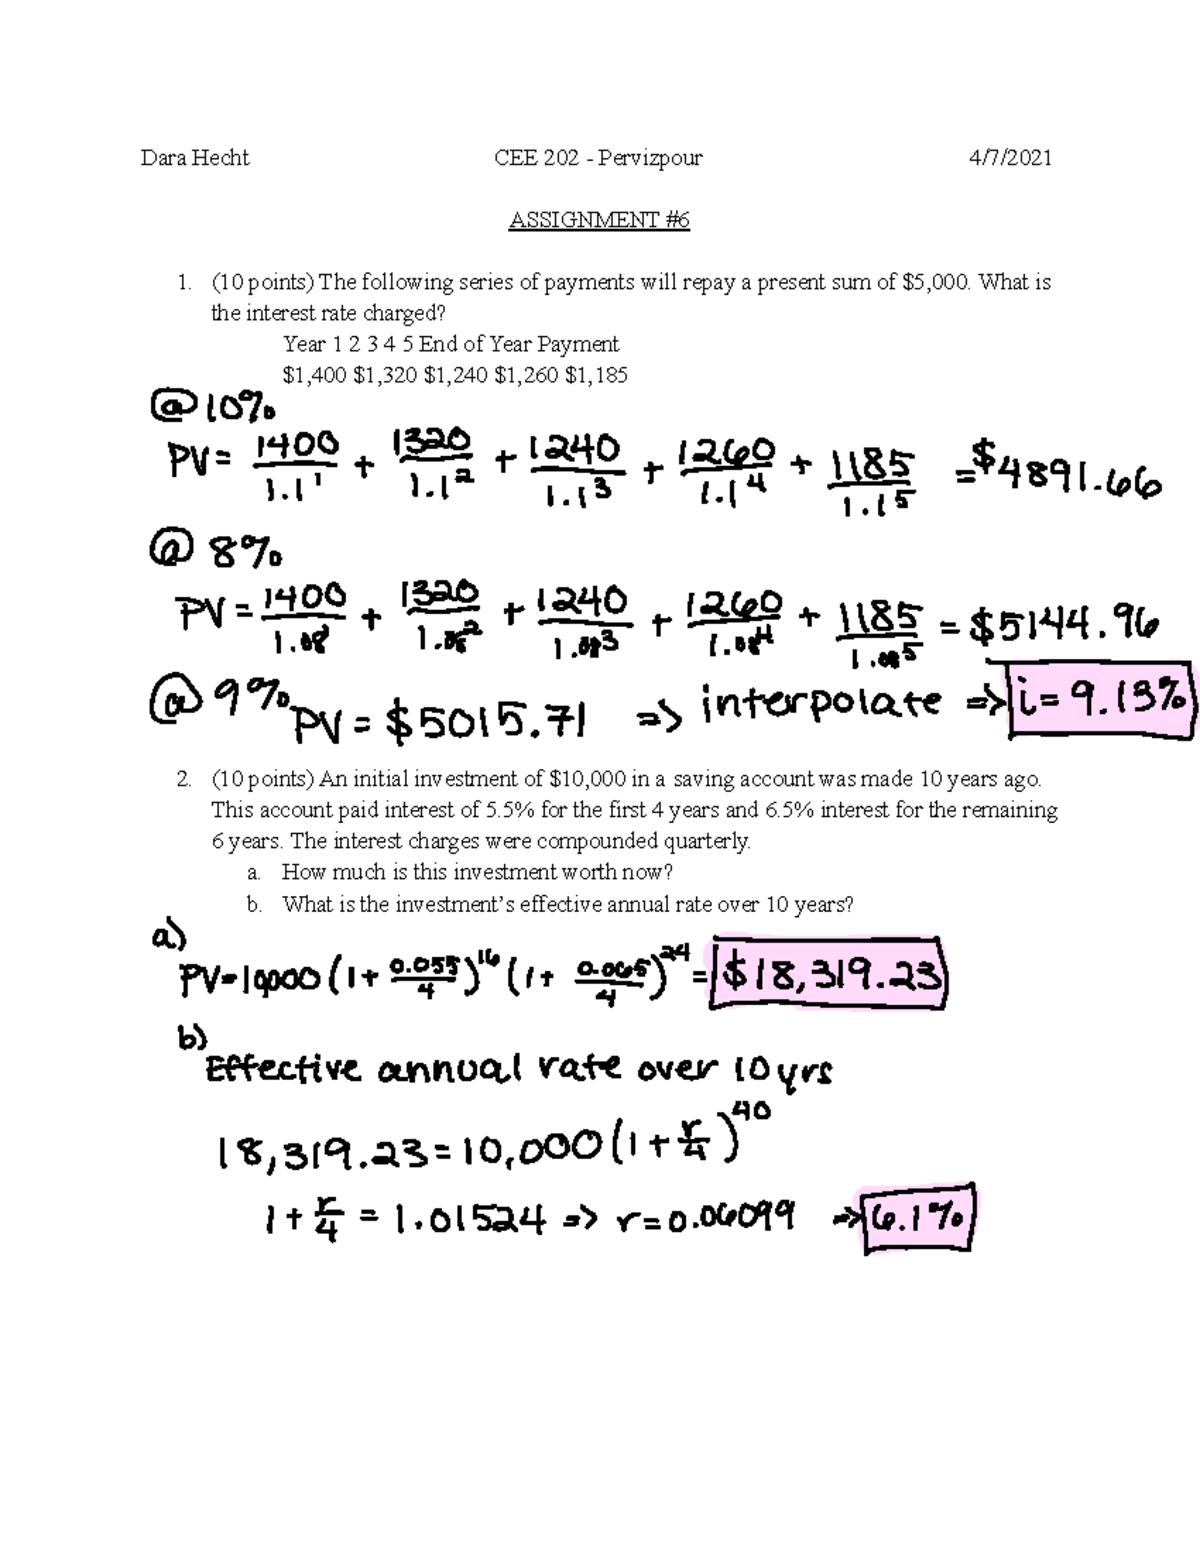 Dara Hecht CEE 202 - Pervizpour 4/7/2021
ASSIGNMENT #6
1. (10 points) The following series of payments will repay a present sum of $5,000. What is
the interest rate charged?
Year 1 2 3 4 5 End of Year Payment
$1,400 $1,320 $1,240 $1,260 $1,185
@ 10%
PV = 1400/1.1^1 + 1320/1.1^2 + 1240/1.1^3 + 1260/1.1^4 + 1185/1.1^5 = $4891.66
@ 8%
PV = 1400/1.08^1 + 1320/1.08^2 + 1240/1.08^3 + 1260/1.08^4 + 1185/1.08^5 = $5144.96
@ 9% PV = $5015.71 => interpolate => i = 9.13%
2. (10 points) An initial investment of $10,000 in a saving account was made 10 years ago.
This account paid interest of 5.5% for the first 4 years and 6.5% interest for the remaining
6 years. The interest charges were compounded quarterly.
a. How much is this investment worth now?
b. What is the investment's effective annual rate over 10 years?
a)
PV=10,000 (1 + 0.055/4)^16 (1 + 0.065/4)^24 = $18,319.23
b)
Effective annual rate over 10 yrs
18,319.23 = 10,000 (1 + r/4)^40
1 + r/4 = 1.01524 => r = 0.06099 => 6.1%